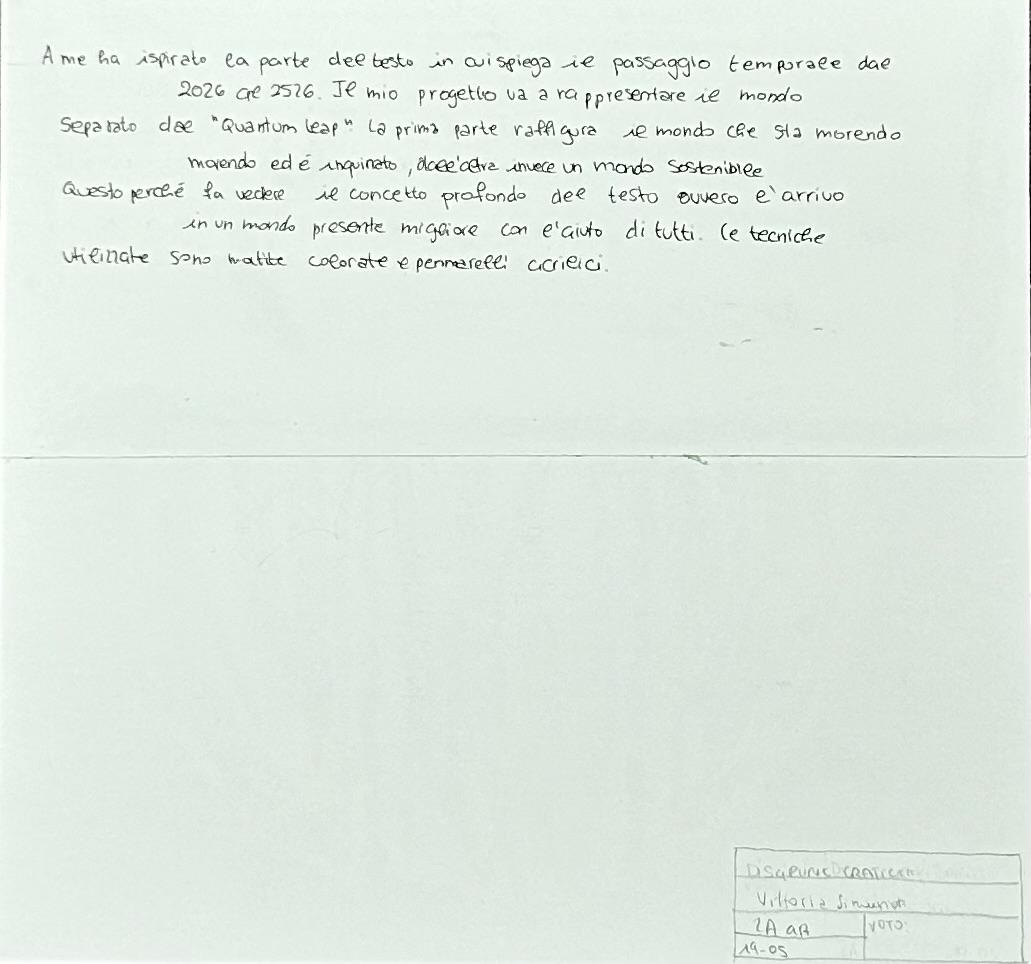 A me ha ispirato la parte del testo in cui spiega il passaggio temporale dal
2026 al 2526. Il mio progetto va a rappresentare il mondo
separato dal "Quantum leap" La prima parte raffigura il mondo che sta morendo
morendo ed é inquinato, dall'altra invece un mondo sostenibile
Questo perché fa vedere il concetto profondo del testo ovvero l'arrivo
in un mondo presente migliore con l'aiuto di tutti. Le tecniche
utilizzate sono matite colorate e pennarelli acrilici.
Vittoria
2A aA
VOTO:
19-05